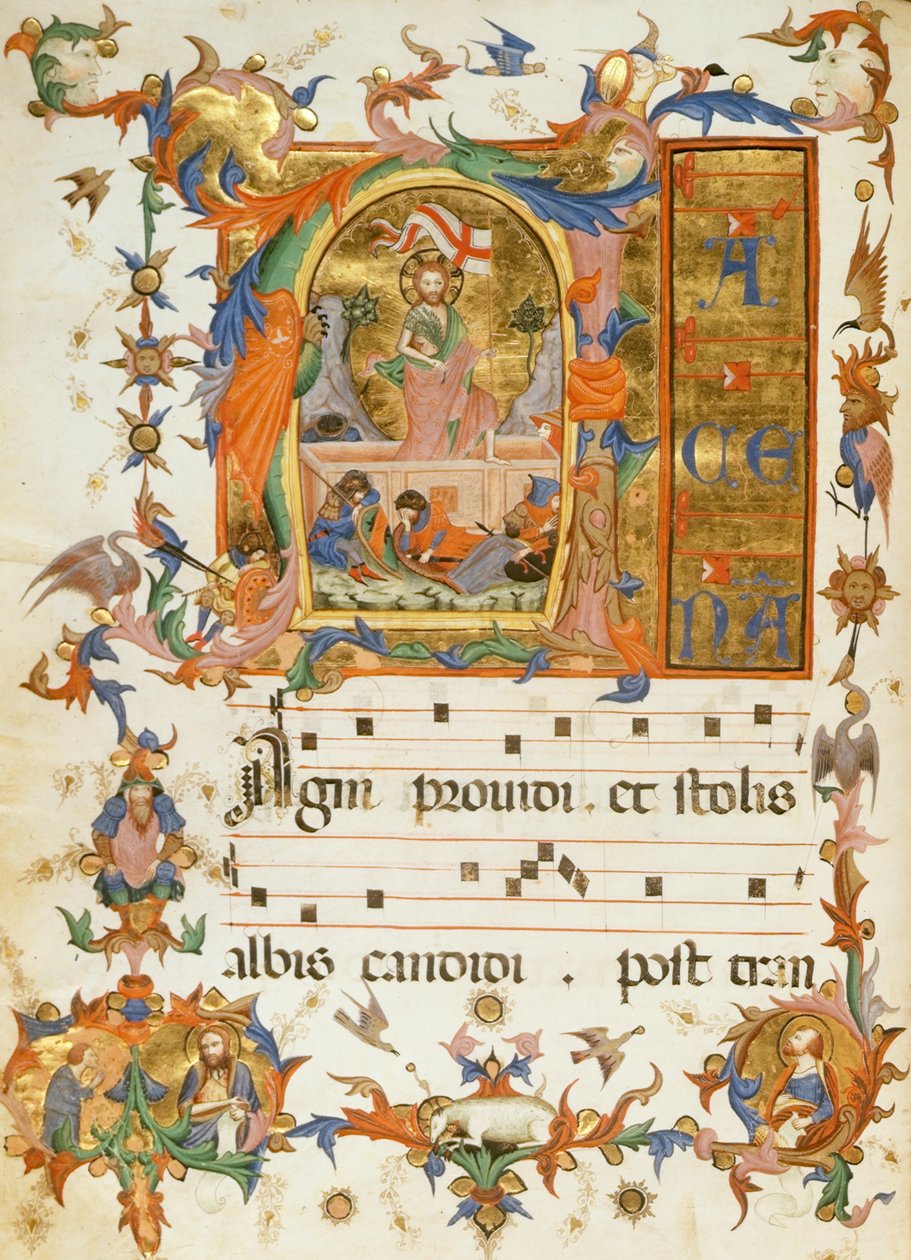 A
CE
NĀ
Agni prouidi . et stolis
albis candidi . post tran